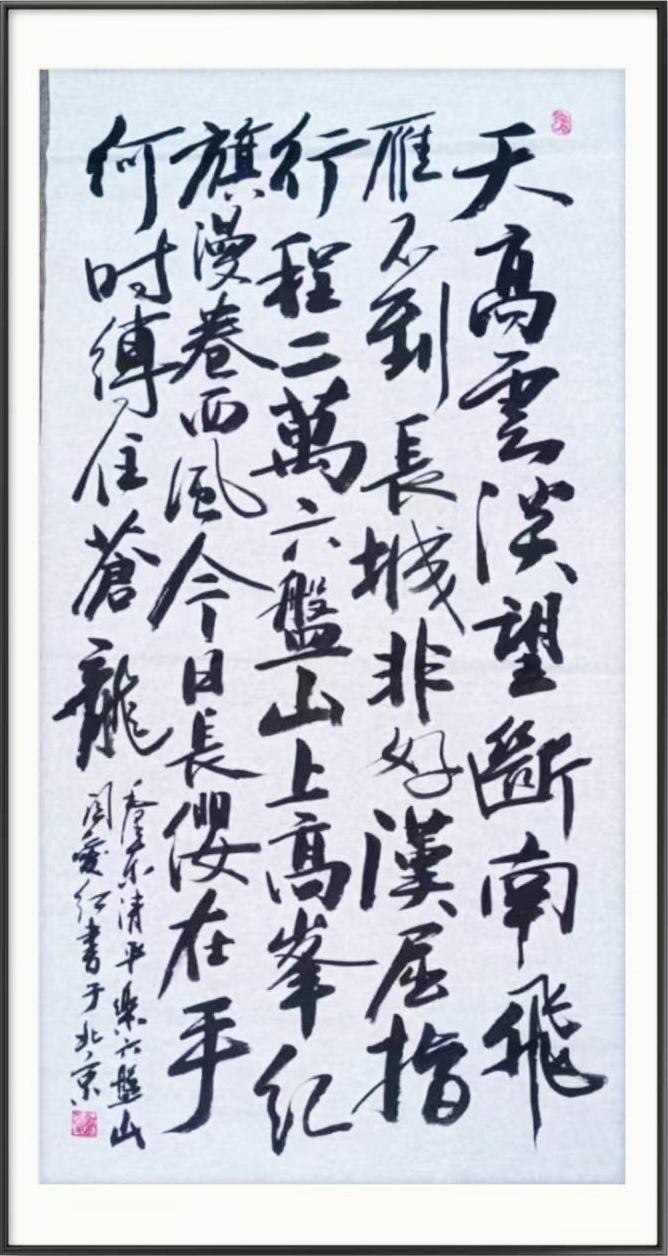 天高雲淡望斷南飛
雁不到長城非好漢屈指
行程二萬六盤山上高峯紀
旗漫卷西風今日長纓在手
何时縛住蒼龍
毛澤东清平樂六盤山
周愛红書于北京